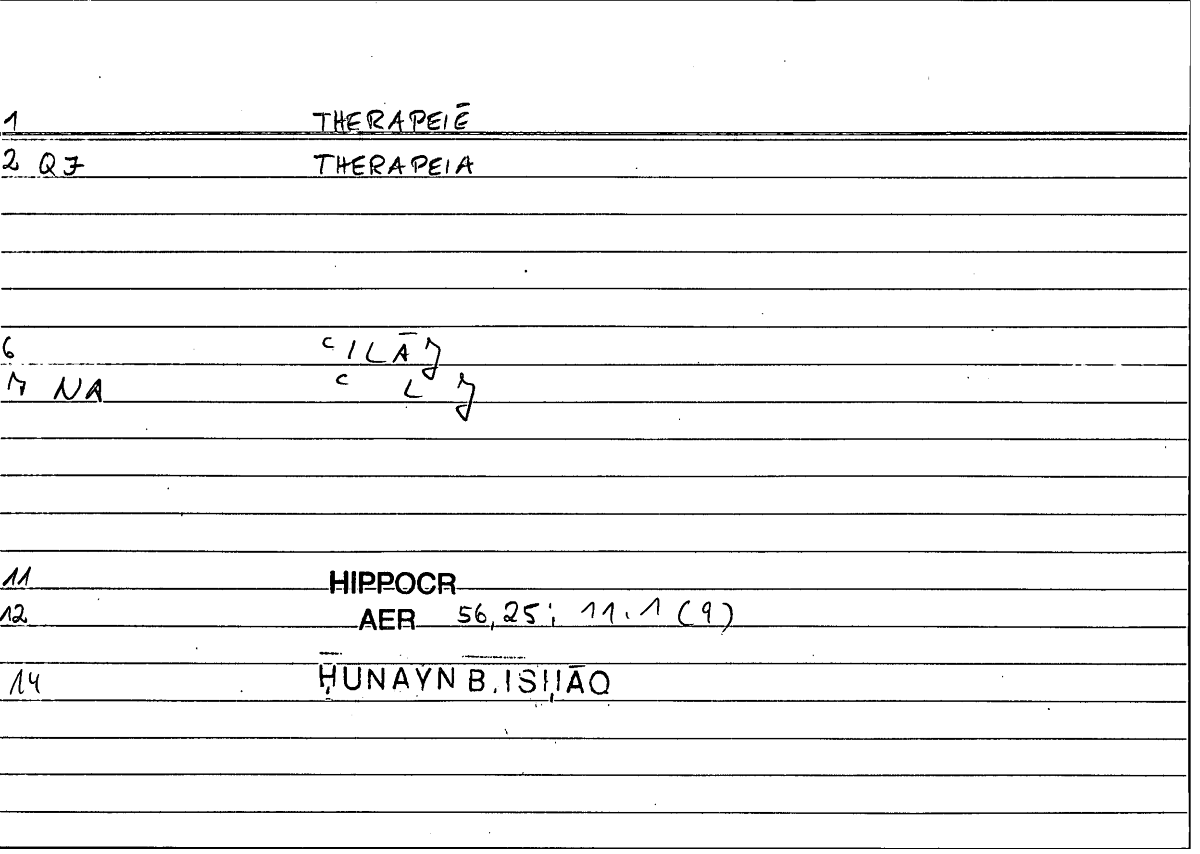 1 THERAPEIĒ
2 QJ THERAPEIA
6 ʿILĀJ
7 NA ʿ L J
11 HIPPOCR
12 AER 56,25; 11.1 (9)
14 ḤUNAYN B. ISḤĀQ